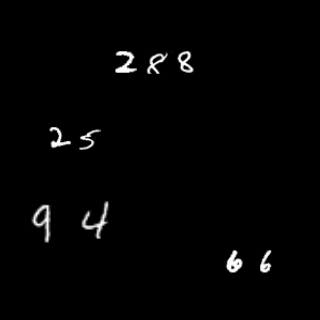 288
25
94
66